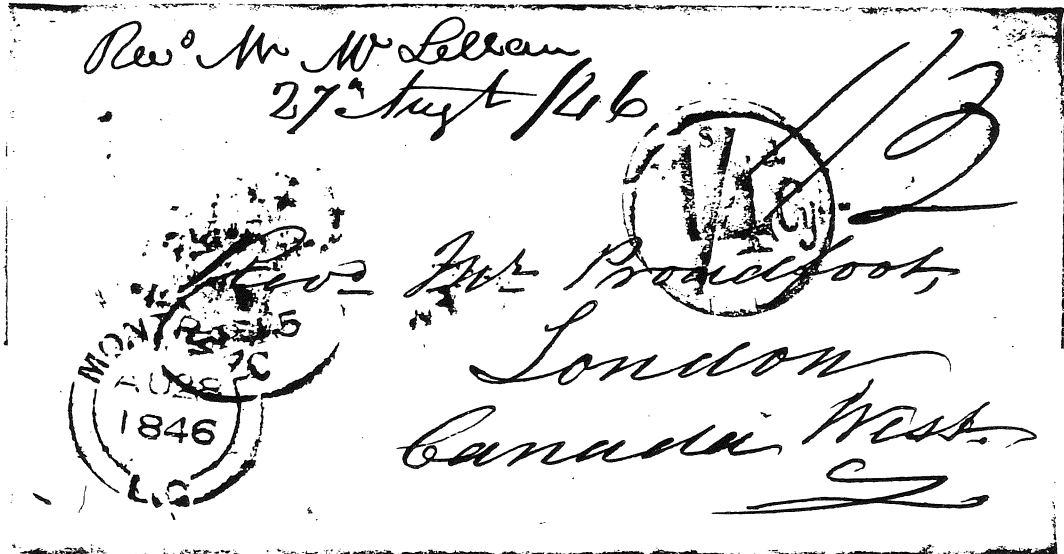 Revd Mr Mc Lellan
27th Augt /46
1/3
s d
1/4 Cy.
Revd. Mr. Proudfoot,
London
Canada West.
MONTREAL
AU 28
1846
L.C